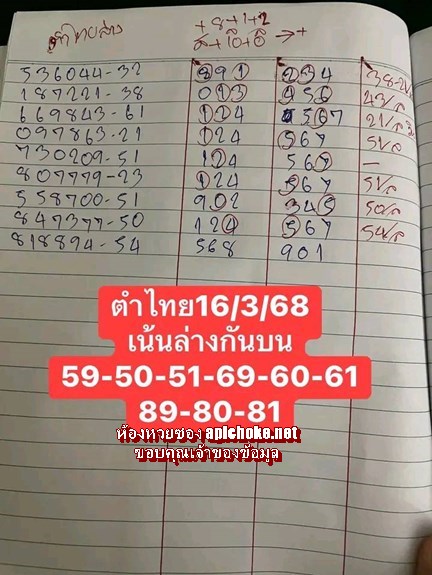 +8+1+2
536044-32 891 234 38-2
187221-38 013 456 43/ล
669843-61 124 567 21/ล
097863-21 124 567 51/ล
730209-51 124 567 -
807779-23 124 567 51/ล
558700-51 902 345 50/ล
847377-50 124 567 54/ล
818894-54 568 901
ตำไทย16/3/68
เน้นล่างกันบน
59-50-51-69-60-61
89-80-81
ห้องหวยซอง apichoke.net
ขอบคุณเจ้าของข้อมูล